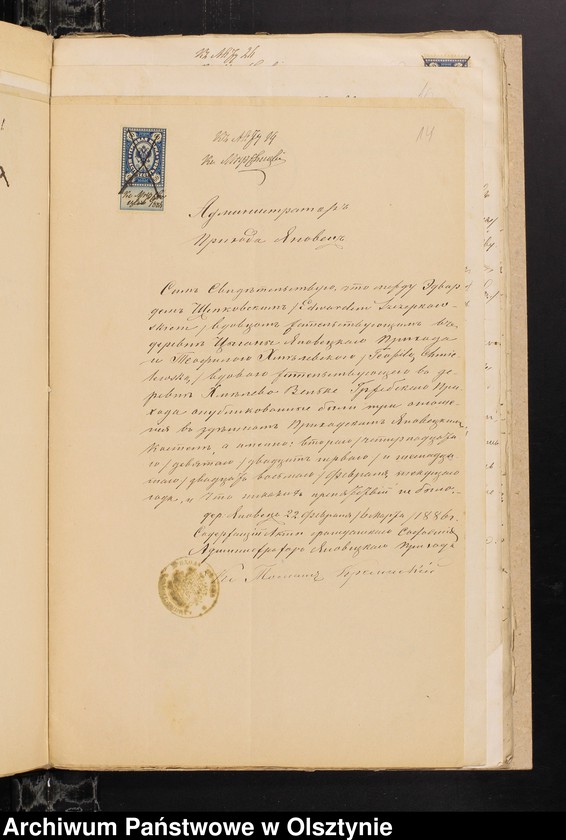 Къ Акту 26
Къ Акту 14
14
Администраторъ
Прихода Яновецъ
Симъ Свидѣтельствую, что между Эдуар
домъ Щепковскимъ /Edwardem Szczepkow-
skiem/ вдовцомъ жительствующимъ въ
деревнѣ Яновецкаго Прихода
и Теофилою Хмѣлевскою /Teofilą Chmie
lewską/ вдовою жительствующею въ де
ревнѣ Хмѣлево Вельке Гребскаго При
хода опубликованные были три оглаше
нія въ здѣшнемъ Приходскомъ Яновецкомъ
Костелѣ, а именно: втораго /четырнадцата
го/ девятаго /двадцать перваго/ и шестнадца
таго /двадцать восьмаго/ Февраля текущаго
года, и что никакихъ препятствій не было.
дер. Яновецъ 22 Февраля /6 Марта/ 1886 г.
Содержащій Акты гражданскаго Состоянія
Администраторъ Яновецкаго Прихода
Кс
Archiwum Państwowe w Olsztynie